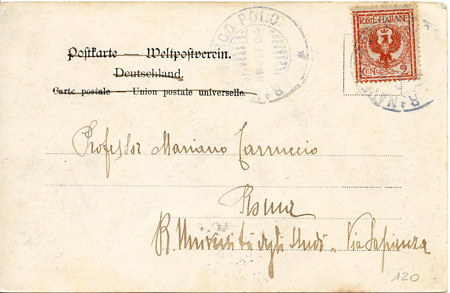 RCO POLO
POSTE ITALIANE
CEN. 2
Postkarte — Weltpostverein.
Deutschland.
Carte postale — Union postale universelle.
Professor Mariano Carruccio
Roma
R. Università degli Studi – Via Sapienza
120